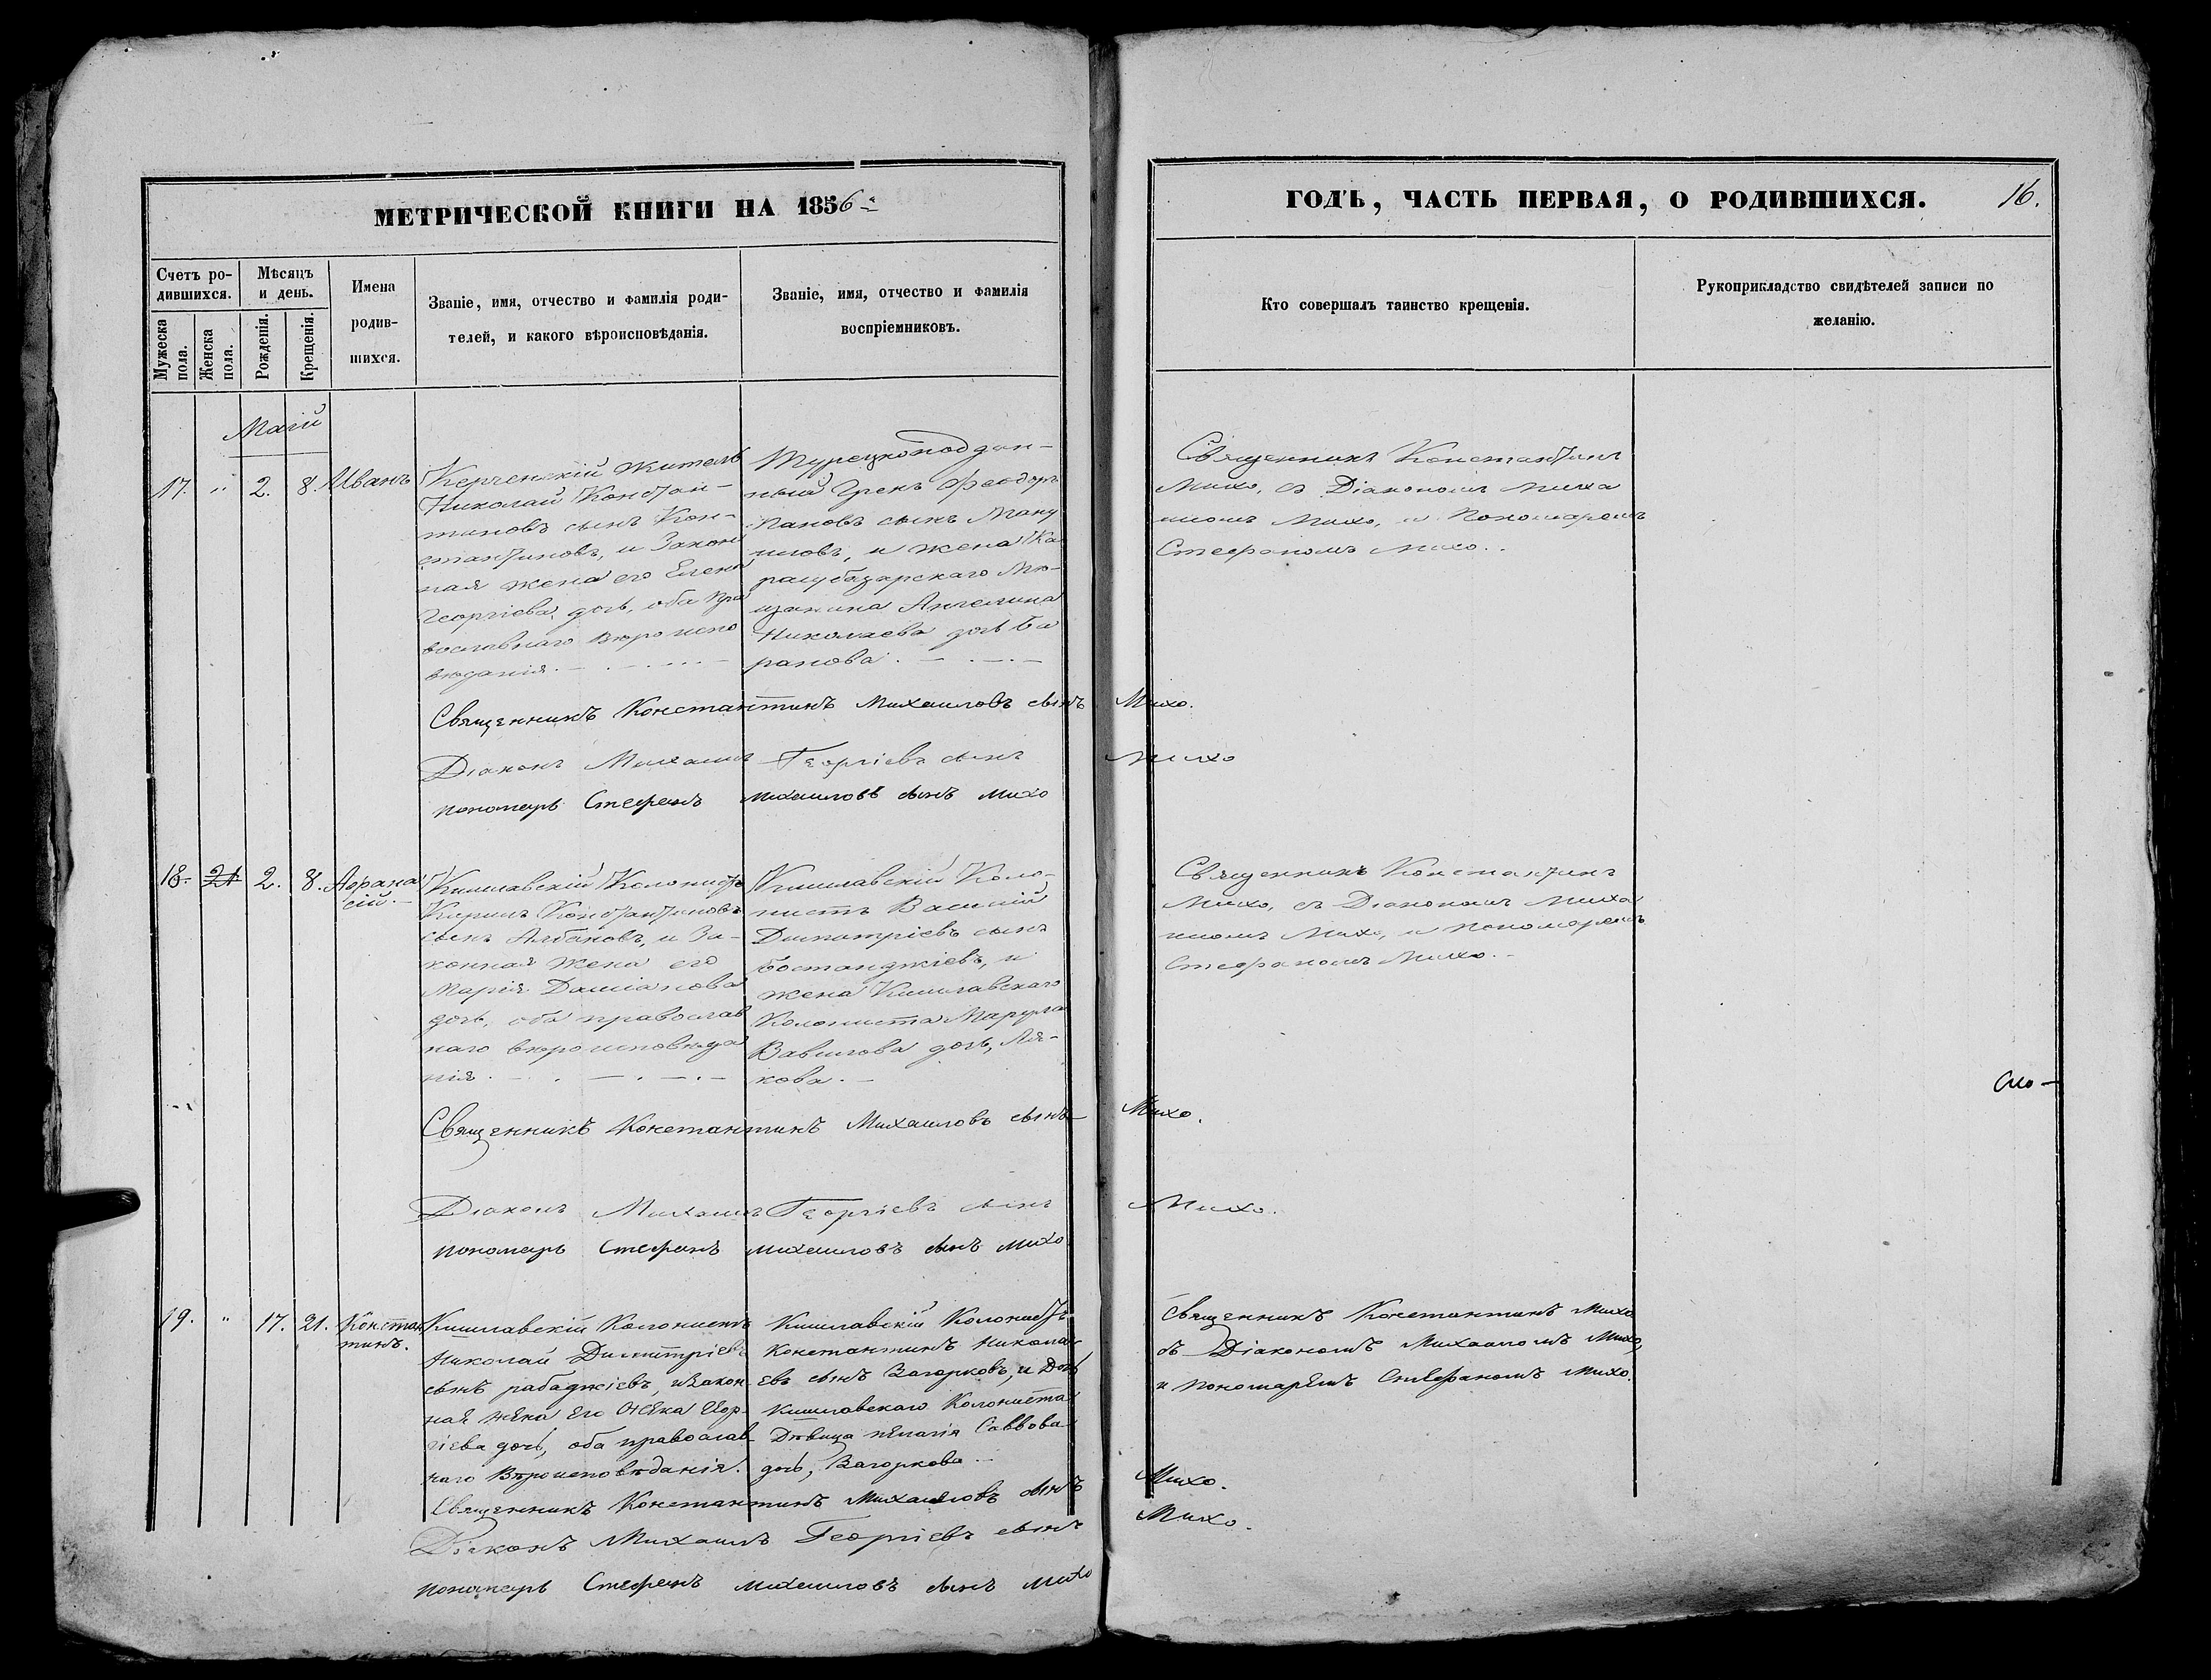 МЕТРИЧЕСКОЙ КНИГИ НА 1856
ГОДЪ, ЧАСТЬ ПЕРВАЯ, О РОДИВШИХСЯ.
16.
Счетъ ро-
дившихся.
Мужеска пола.
Женска пола.
Мѣсяцъ
и день.
Рожденія.
Крещенія.
Имена
родив-
шихся.
Званіе, имя, отчество и фамилія роди-
телей, и какого вѣроисповѣданія.
Званіе, имя, отчество и фамилія
воспріемниковъ.
Кто совершалъ таинство крещенія.
Рукоприкладство свидѣтелей записи по
желанію.
Маій
17. " 2. 8. Иванъ
Керченскій житель
Николай Констан-
тиновъ сынъ Кон-
стантиновъ, и Закон
ная жена его Елена
Георгіева дочь, оба пра
вославнаго вѣроиспо
вѣданія.
Турецкоподдан-
ный Грекъ Феодоръ
Пановъ сынъ Ману
иловъ, и жена Ка
расубазарскаго Мѣ-
щанина Ангелина
Николаева дочь Ба
ранова.
Священникъ Константинъ
Михо, съ Діакономъ Миха
иломъ Михо, и Пономаремъ
Стефаномъ Михо.
Священникъ Константинъ Михаиловъ сынъ Михо.
Діаконъ Михаилъ Георгіевъ сынъ Михо
пономарь Стефанъ Михаиловъ сынъ Михо
18. 21 2. 8. Афана
сій.
Кишлавскій Колонистъ
Кирилъ Константиновъ
сынъ Албановъ, и За-
конная жена его
Марія Даміанова
дочь, оба православ
наго вѣроисповѣда
нія.
Кишлавскій Коло-
нистъ Василій
Димитріевъ сынъ
Бостанджіевъ, и
жена Кишлавскаго
Колониста Марула
Вавилова дочь, Ля-
кова.
Священникъ Константинъ
Михо, съ Діакономъ Миха
иломъ Михо, и пономаремъ
Стефаномъ Михо.
Священникъ Константинъ Михаиловъ сынъ Михо.
Діаконъ Михаилъ Георгіевъ сынъ Михо.
пономарь Стефанъ Михаиловъ сынъ Михо
19. " 17. 21. Констан
тинъ.
Кишлавскій Колонистъ
Николай Димитріевъ
сынъ рабаджіевъ, и Закон-
ная жена его Нека Геор-
гіева дочь, оба православ-
наго Вѣроисповѣданія.
Кишлавскій Колонистъ
Константинъ Никола
евъ сынъ Вагорковъ, и Дочь
Кишлавскаго Колониста
Дѣвица пелагія Саввова
дочь, Вагоркова
Священникъ Константинъ Михо
съ Діакономъ Михаиломъ Михо,
и пономаремъ Стефаномъ Михо.
Священникъ Константинъ Михаиловъ сынъ Михо.
Діаконъ Михаилъ Георгіевъ сынъ Михо.
пономарь Стефанъ Михаиловъ сынъ Михо